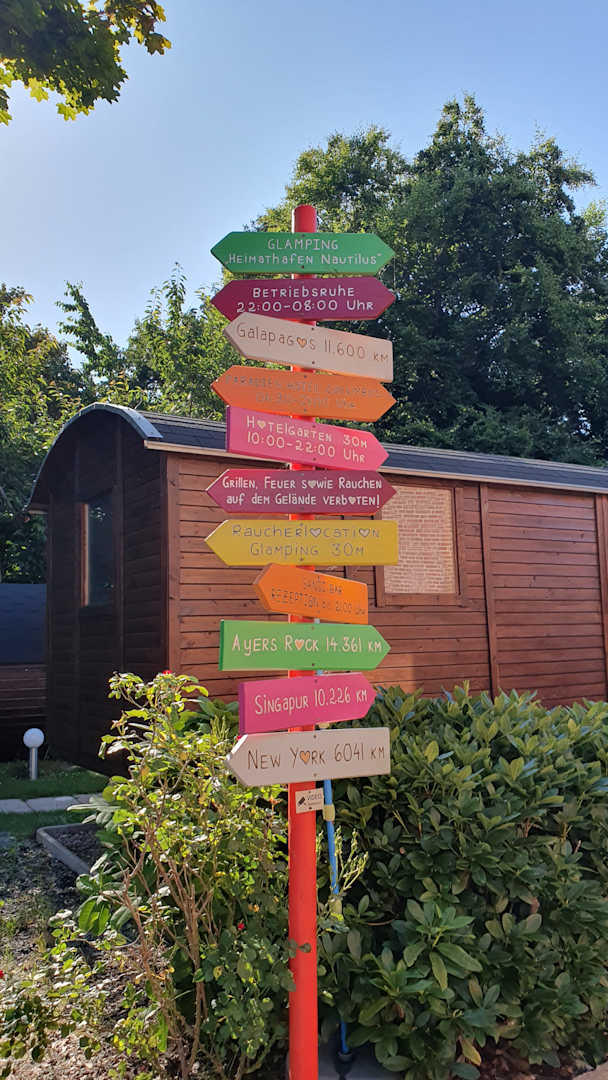 GLAMPING
„Heimathafen Nautilus"
Betriebsruhe
22:00-08:00 Uhr
Galapagos 11.600 KM
Hotelgarten 30m
10:00-22:00 Uhr
Grillen, Feuer sowie Rauchen
auf dem Gelände verboten!
Raucherlocation
Glamping 30m
Rezeption
Ayers Rock 14.361 km
Singapur 10.226 km
New York 6041 km
VIDEO